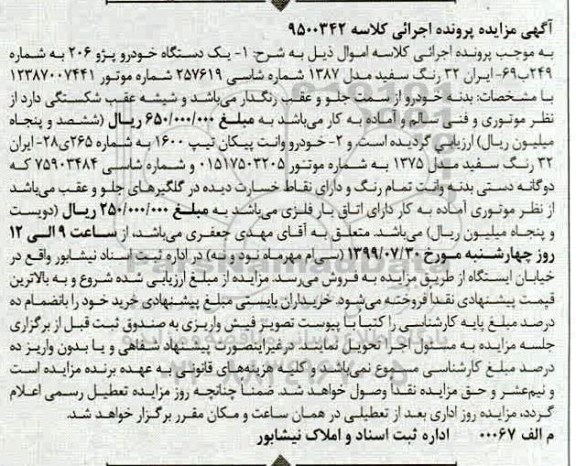 آگهی مزایده پرونده اجرائی کلاسه ۹۵۰۰۳۴۲
به موجب پرونده اجرائی کلاسه اموال ذیل به شرح: ۱- یک دستگاه خودرو پژو ۲۰۶ به شماره
۲۴۹ب۶۹- ایران ۳۲ رنگ سفید مدل ۱۳۸۷ شماره شاسی ۲۵۷۶۱۹ شماره موتور ۱۲۳۸۷۰۰۷۴۴۱
با مشخصات: بدنه خودرو از سمت جلو و عقب رنگدار می‌باشد و شیشه عقب شکستگی دارد از
نظر موتوری و فنی سالم و آماده به کار می‌باشد به مبلغ ۶۵۰/۰۰۰/۰۰۰ ریال (ششصد و پنجاه
میلیون ریال) ارزیابی گردیده است. و ۲- خودرو وانت پیکان تیپ ۱۶۰۰ به شماره ۲۶۵ی۲۸- ایران
۳۲ رنگ سفید مدل ۱۳۷۵ به شماره موتور ۰۱۵۱۷۵۰۳۲۰۵ و شماره شاسی ۷۵۹۰۳۴۸۴ که
دوگانه دستی بدنه وانت تمام رنگ و دارای نقاط خسارت دیده در گلگیرهای جلو و عقب می‌باشد
از نظر موتوری آماده به کار دارای اتاق بار فلزی می‌باشد به مبلغ ۲۵۰/۰۰۰/۰۰۰ ریال (دویست
و پنجاه میلیون ریال) می‌باشد. متعلق به آقای مهدی جعفری می‌باشد، از ساعت ۹ الی ۱۲
روز چهارشنبه مورخ ۱۳۹۹/۰۷/۳۰ (سی‌ام مهرماه نود و نه) در اداره ثبت اسناد نیشابور واقع در
خیابان ایستگاه از طریق مزایده به فروش می‌رسد. مزایده از مبلغ ارزیابی شده شروع و به بالاترین
قیمت پیشنهادی نقداً فروخته می‌شود. خریداران بایستی مبلغ پیشنهادی خرید خود را بانضمام ده
درصد مبلغ پایه کارشناسی را کتباً با پیوست تصویر فیش واریزی به صندوق ثبت قبل از برگزاری
جلسه مزایده به مسئول اجرا تحویل نمایند. درغیراینصورت پیشنهاد شفاهی و یا بدون واریز ده
درصد مبلغ کارشناسی مسموع نمی‌باشد و کلیه هزینه‌های قانونی به عهده برنده مزایده است
و نیم‌عشر و حق مزایده نقداً وصول خواهد شد. ضمناً چنانچه روز مزایده تعطیل رسمی اعلام
گردد، مزایده روز اداری بعد از تعطیلی در همان ساعت و مکان مقرر برگزار خواهد شد.
م الف ۰۰۰۶۷ اداره ثبت اسناد و املاک نیشابور